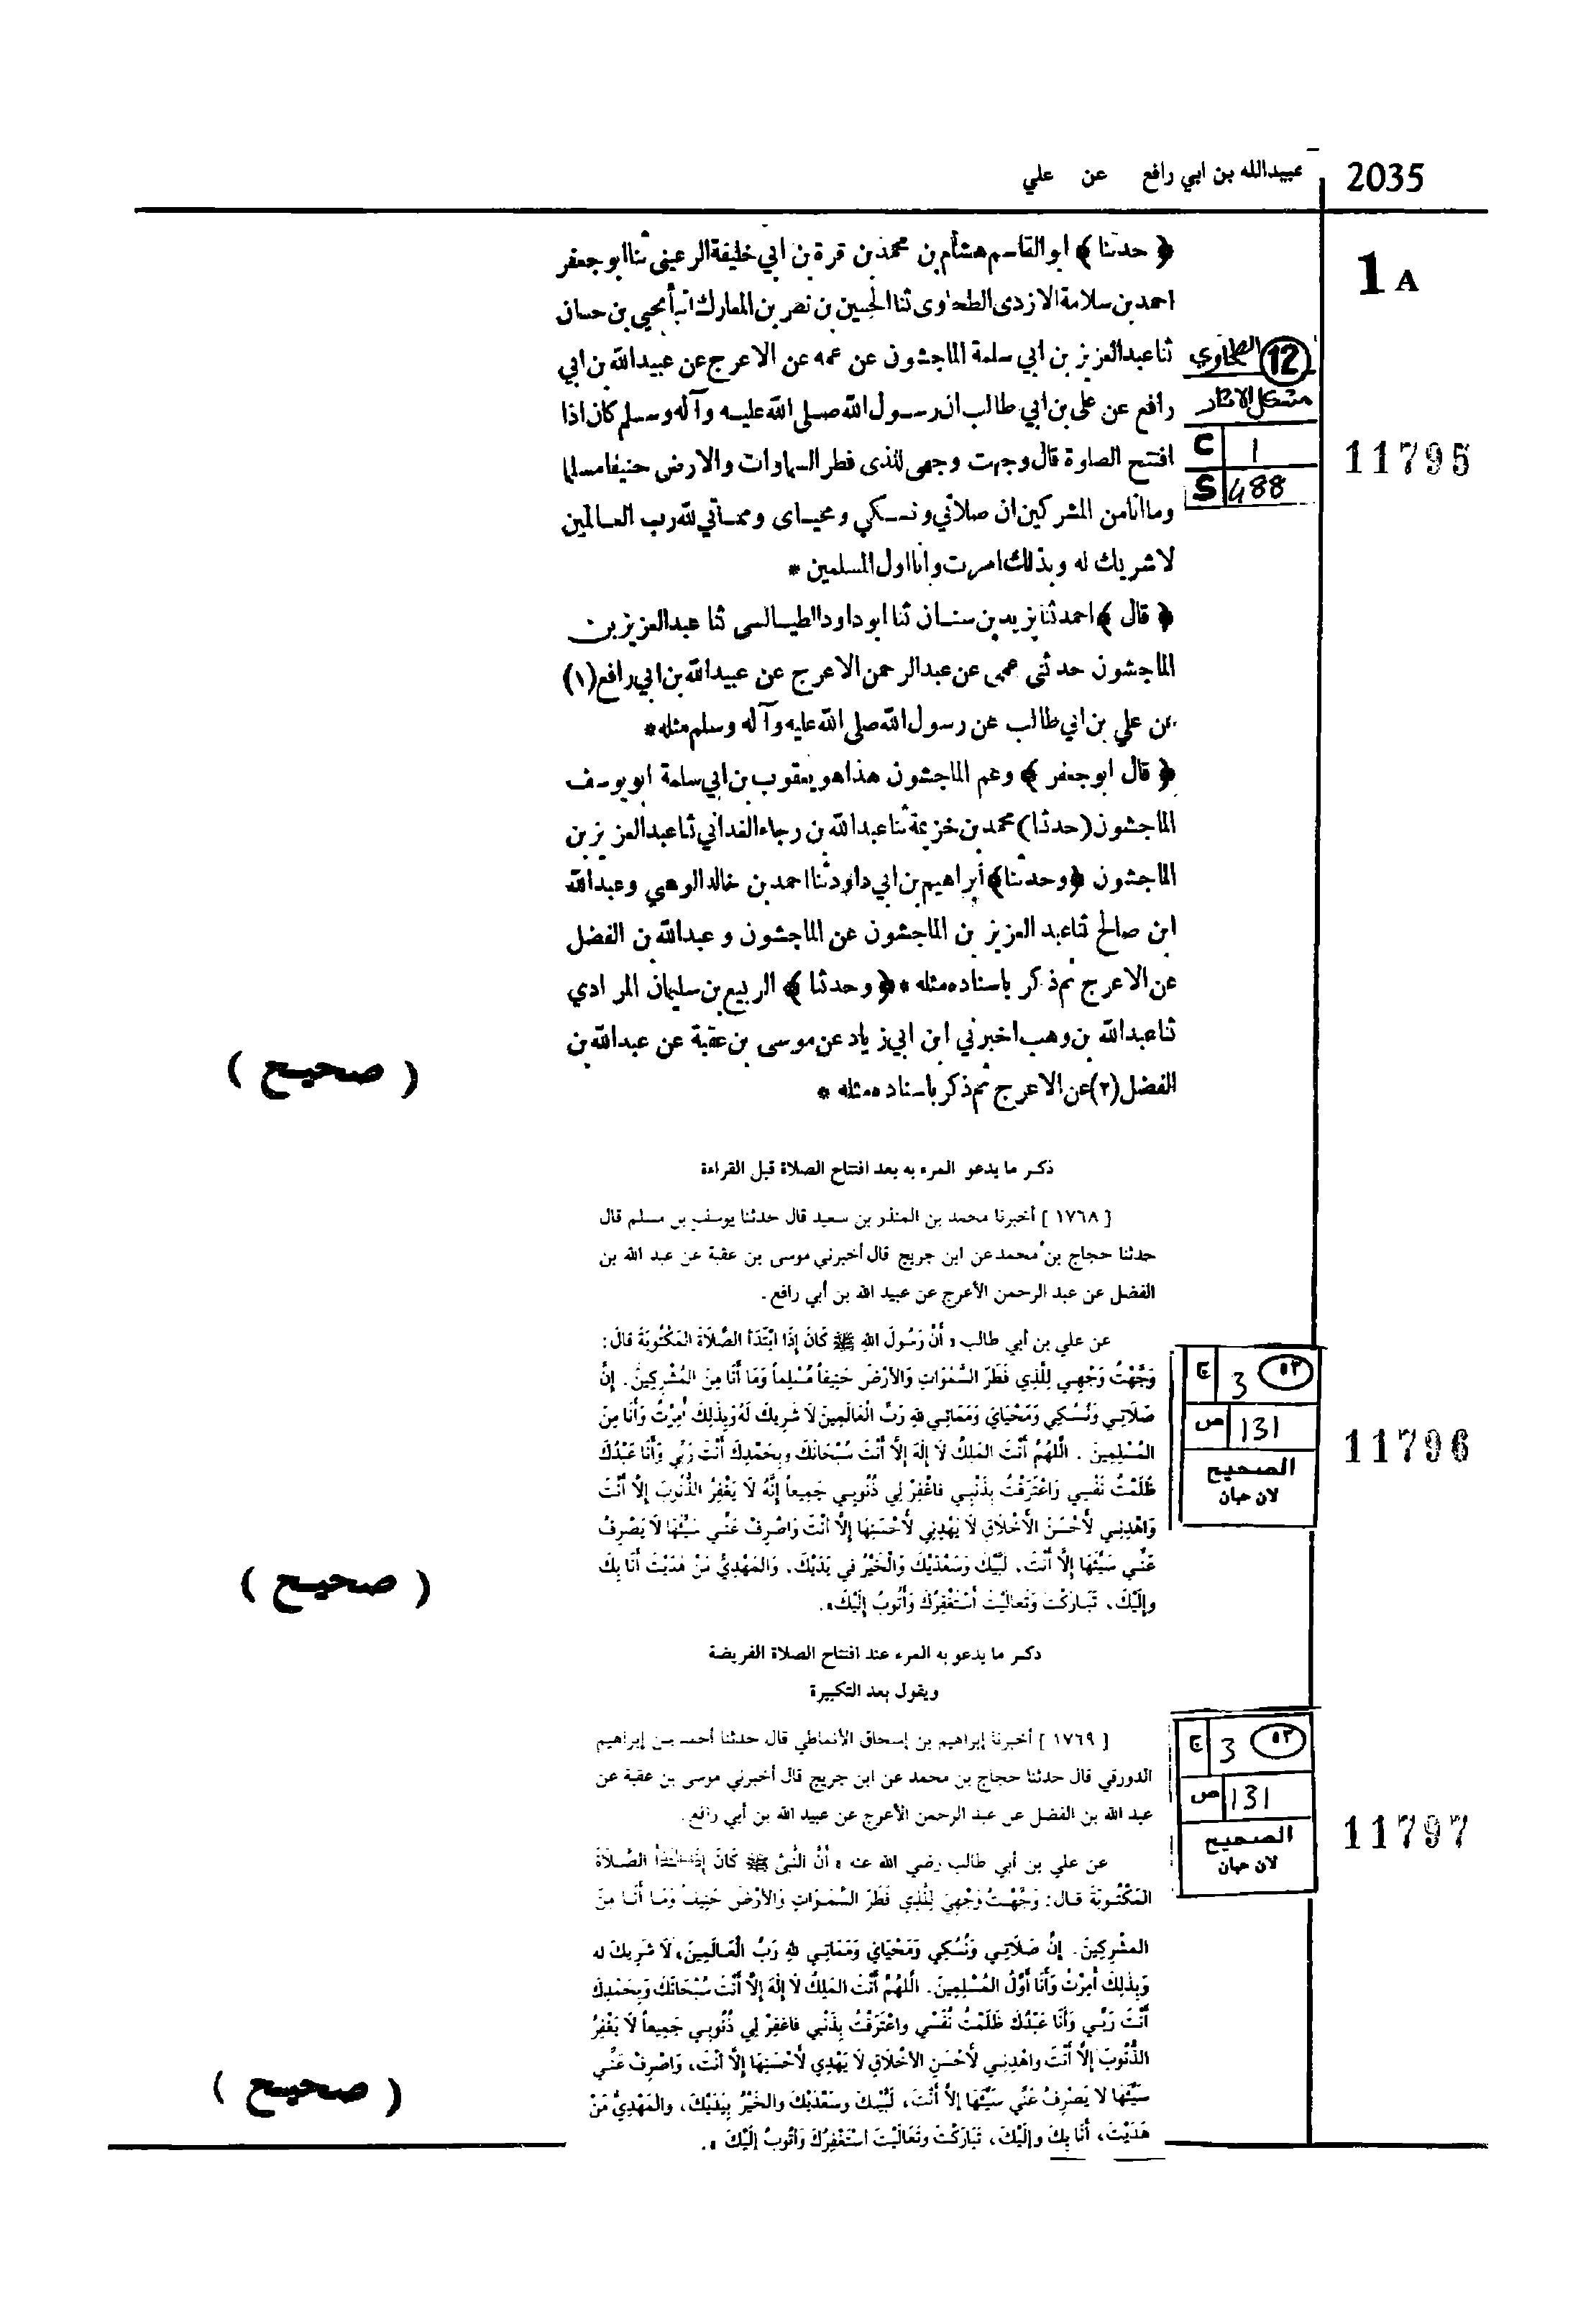 2035
عبيدالله بن ابي رافع عن علي
1 A
﴿ حدثنا ﴾ ابوالقاسم هشام بن محمد بن قرة بن ابي خليفة الرعينى ثنا ابو جعفر
احمد بن سلامة الازدى الطحاوى ثنا الحسين بن نصر بن المعارك انبأ يحيى بن حسان
ثنا عبدالعزيز بن ابي سلمة الماجشون عن عمه عن الاعرج عن عبيدالله بن ابي
رافع عن على بن ابي طالب ان رسول الله صلى الله عليه وآله وسلم كان اذا
افتتح الصلوة قال وجهت وجهى للذى فطر السماوات والارض حنيفا مسلما
وما انا من المشركين ان صلاتي ونسكي ومحياى ومماتي لله رب العالمين
لا شريك له وبذلك امرت وانا اول المسلمين *
12 الطحاوي
مشكل الاثار
C 1
S 488
11795
﴿ قال ﴾ احمد ثنا يزيد بن سنان ثنا ابو داود الطيالسى ثنا عبدالعزيز بن
الماجشون حدثنى عمى عن عبدالرحمن الاعرج عن عبيدالله بن ابي رافع (١)
عن علي بن ابي طالب عن رسول الله صلى الله عليه وآله وسلم مثله *
﴿ قال ابو جعفر ﴾ وعم الماجشون هذا هو يعقوب بن ابي سلمة ابو يوسف
الماجشون (حدثنا) محمد بن خزيمة ثنا عبدالله بن رجاء الغداني ثنا عبدالعزيز بن
الماجشون ﴿ وحدثنا ﴾ ابراهيم بن ابي داود ثنا احمد بن خالد الوهبي وعبدالله
ابن صالح ثنا عبد العزيز بن الماجشون عن الماجشون و عبدالله بن الفضل
عن الاعرج ثم ذكر باسناده مثله * ﴿ وحدثنا ﴾ الربيع بن سليمان المرادي
ثنا عبدالله بن وهب اخبرني ابن ابي زياد عن موسى بن عقبة عن عبدالله بن
الفضل (٢) عن الاعرج ثم ذكر باسناده مثله *
( صحيح )
ذكر ما يدعو المرء به بعد افتتاح الصلاة قبل القراءة
[ ١٧٦٨ ] أخبرنا محمد بن المنذر بن سعيد قال حدثنا يوسف بن مسلم قال
حدثنا حجاج بن محمد عن ابن جريج قال أخبرني موسى بن عقبة عن عبد الله بن
الفضل عن عبد الرحمن الأعرج عن عبيد الله بن أبي رافع .
عن علي بن أبي طالب « أَنَّ رَسُولَ اللهِ ﷺ كَانَ إِذَا ابْتَدَأَ الصَّلَاةَ المَكْتُوبَةَ قالَ :
وَجَّهْتُ وَجْهِي لِلَّذِي فَطَرَ السَّمٰوَاتِ وَالأَرْضَ حَنِيفاً مُسْلِماً وَمَا أَنَا مِنَ المُشْرِكِينَ . إِنَّ
صَلَاتِي وَنُسُكِي وَمَحْيَايَ وَمَمَاتِي للهِ رَبِّ الْعَالَمِينَ لَا شَرِيكَ لَهُ وَبِذَلِكَ أُمِرْتُ وَأَنَا مِنَ
المُسْلِمِينَ . اللَّهُمَّ أَنْتَ المَلِكُ لَا إِلٰهَ إِلَّا أَنْتَ سُبْحَانَكَ وبِحَمْدِكَ أَنْتَ رَبِّي وَأَنَا عَبْدُكَ
ظَلَمْتُ نَفْسِي وَاعْتَرَفْتُ بِذَنْبِي فاغْفِرْ لِي ذُنُوبِي جَمِيعاً إِنَّهُ لَا يَغْفِرُ الذُّنُوبَ إِلَّا أَنْتَ
وَاهْدِنِي لأَحْسَنِ الأَخْلَاقِ لَا يَهْدِنِي لأَحْسَنِهَا إِلَّا أَنْتَ وَاصْرِفْ عَنِّي سَيِّئَهَا لَا يَصْرِفُ
عَنِّي سَيِّئَهَا إِلَّا أَنْتَ . لَبَّيْكَ وَسَعْدَيْكَ وَالْخَيْرُ في يَدَيْكَ . وَالمَهْدِيُّ مَنْ هَدَيْتَ أَنَا بِكَ
وإِلَيْكَ . تَبَارَكْتَ وَتَعَالَيْتَ أَسْتَغْفِرُكَ وَأَتُوبُ إِلَيْكَ » .
٥٣ 3 ج
131 ص
الصحيح
لابن حبان
11796
( صحيح )
ذكر ما يدعو به المرء عند افتتاح الصلاة الفريضة
ويقول بعد التكبيرة
[ ١٧٦٩ ] أخبرنا إبراهيم بن إسحاق الأنماطي قال حدثنا أحمد بن إبراهيم
الدورقي قال حدثنا حجاج بن محمد عن ابن جريج قال أخبرني موسى بن عقبة عن
عبد الله بن الفضل عن عبد الرحمن الأعرج عن عبيد الله بن أبي رافع .
عن علي بن أبي طالب رضي الله عنه « أَنَّ النَّبِيَّ ﷺ كَانَ إِذَا ابْتَدَأَ الصَّلَاةَ
المَكْتُوبَةَ قال : وَجَّهْتُ وَجْهِيَ لِلَّذِي فَطَرَ السَّمٰوَاتِ وَالأَرْضَ حَنِيفاً وَمَا أَنَا مِنَ
المشْرِكِينَ . إِنَّ صَلَاتِي وَنُسُكِي وَمَحْيَايَ وَمَمَاتِي للهِ رَبِّ الْعَالَمِينَ ، لَا شَرِيكَ له
وَبِذَلِكَ أُمِرْتُ وَأَنَا أَوَّلُ المُسْلِمِينَ . اللَّهُمَّ أَنْتَ المَلِكُ لَا إِلٰهَ إِلَّا أَنْتَ سُبْحَانَكَ وَبِحَمْدِكَ
أَنْتَ رَبِّي وَأَنَا عَبْدُكَ ظَلَمْتُ نَفْسِي واعْتَرَفْتُ بِذَنْبِي فاغفِرْ لِي ذُنُوبِي جَمِيعاً لَا يَغْفِرُ
الذُّنُوبَ إِلَّا أَنْتَ واهْدِنِي لأَحْسَنِ الأَخْلَاقِ لَا يَهْدِي لأَحْسَنِهَا إِلَّا أَنْتَ ، وَاصْرِفْ عَنِّي
سَيِّئَهَا لا يَصْرِفُ عَنِّي سَيِّئَهَا إلَّا أَنْتَ ، لَبَّيْكَ وسَعْدَيْكَ والخَيْرُ بِيَدَيْكَ ، والمَهْدِيُّ مَنْ
هَدَيْتَ ، أَنَا بِكَ وإِلَيْكَ ، تَبَارَكْتَ وتَعَالَيْتَ أَسْتَغْفِرُكَ وَأَتُوبُ إِلَيْكَ » .
٥٣ 3 ج
131 ص
الصحيح
لابن حبان
11797
( صحيح )